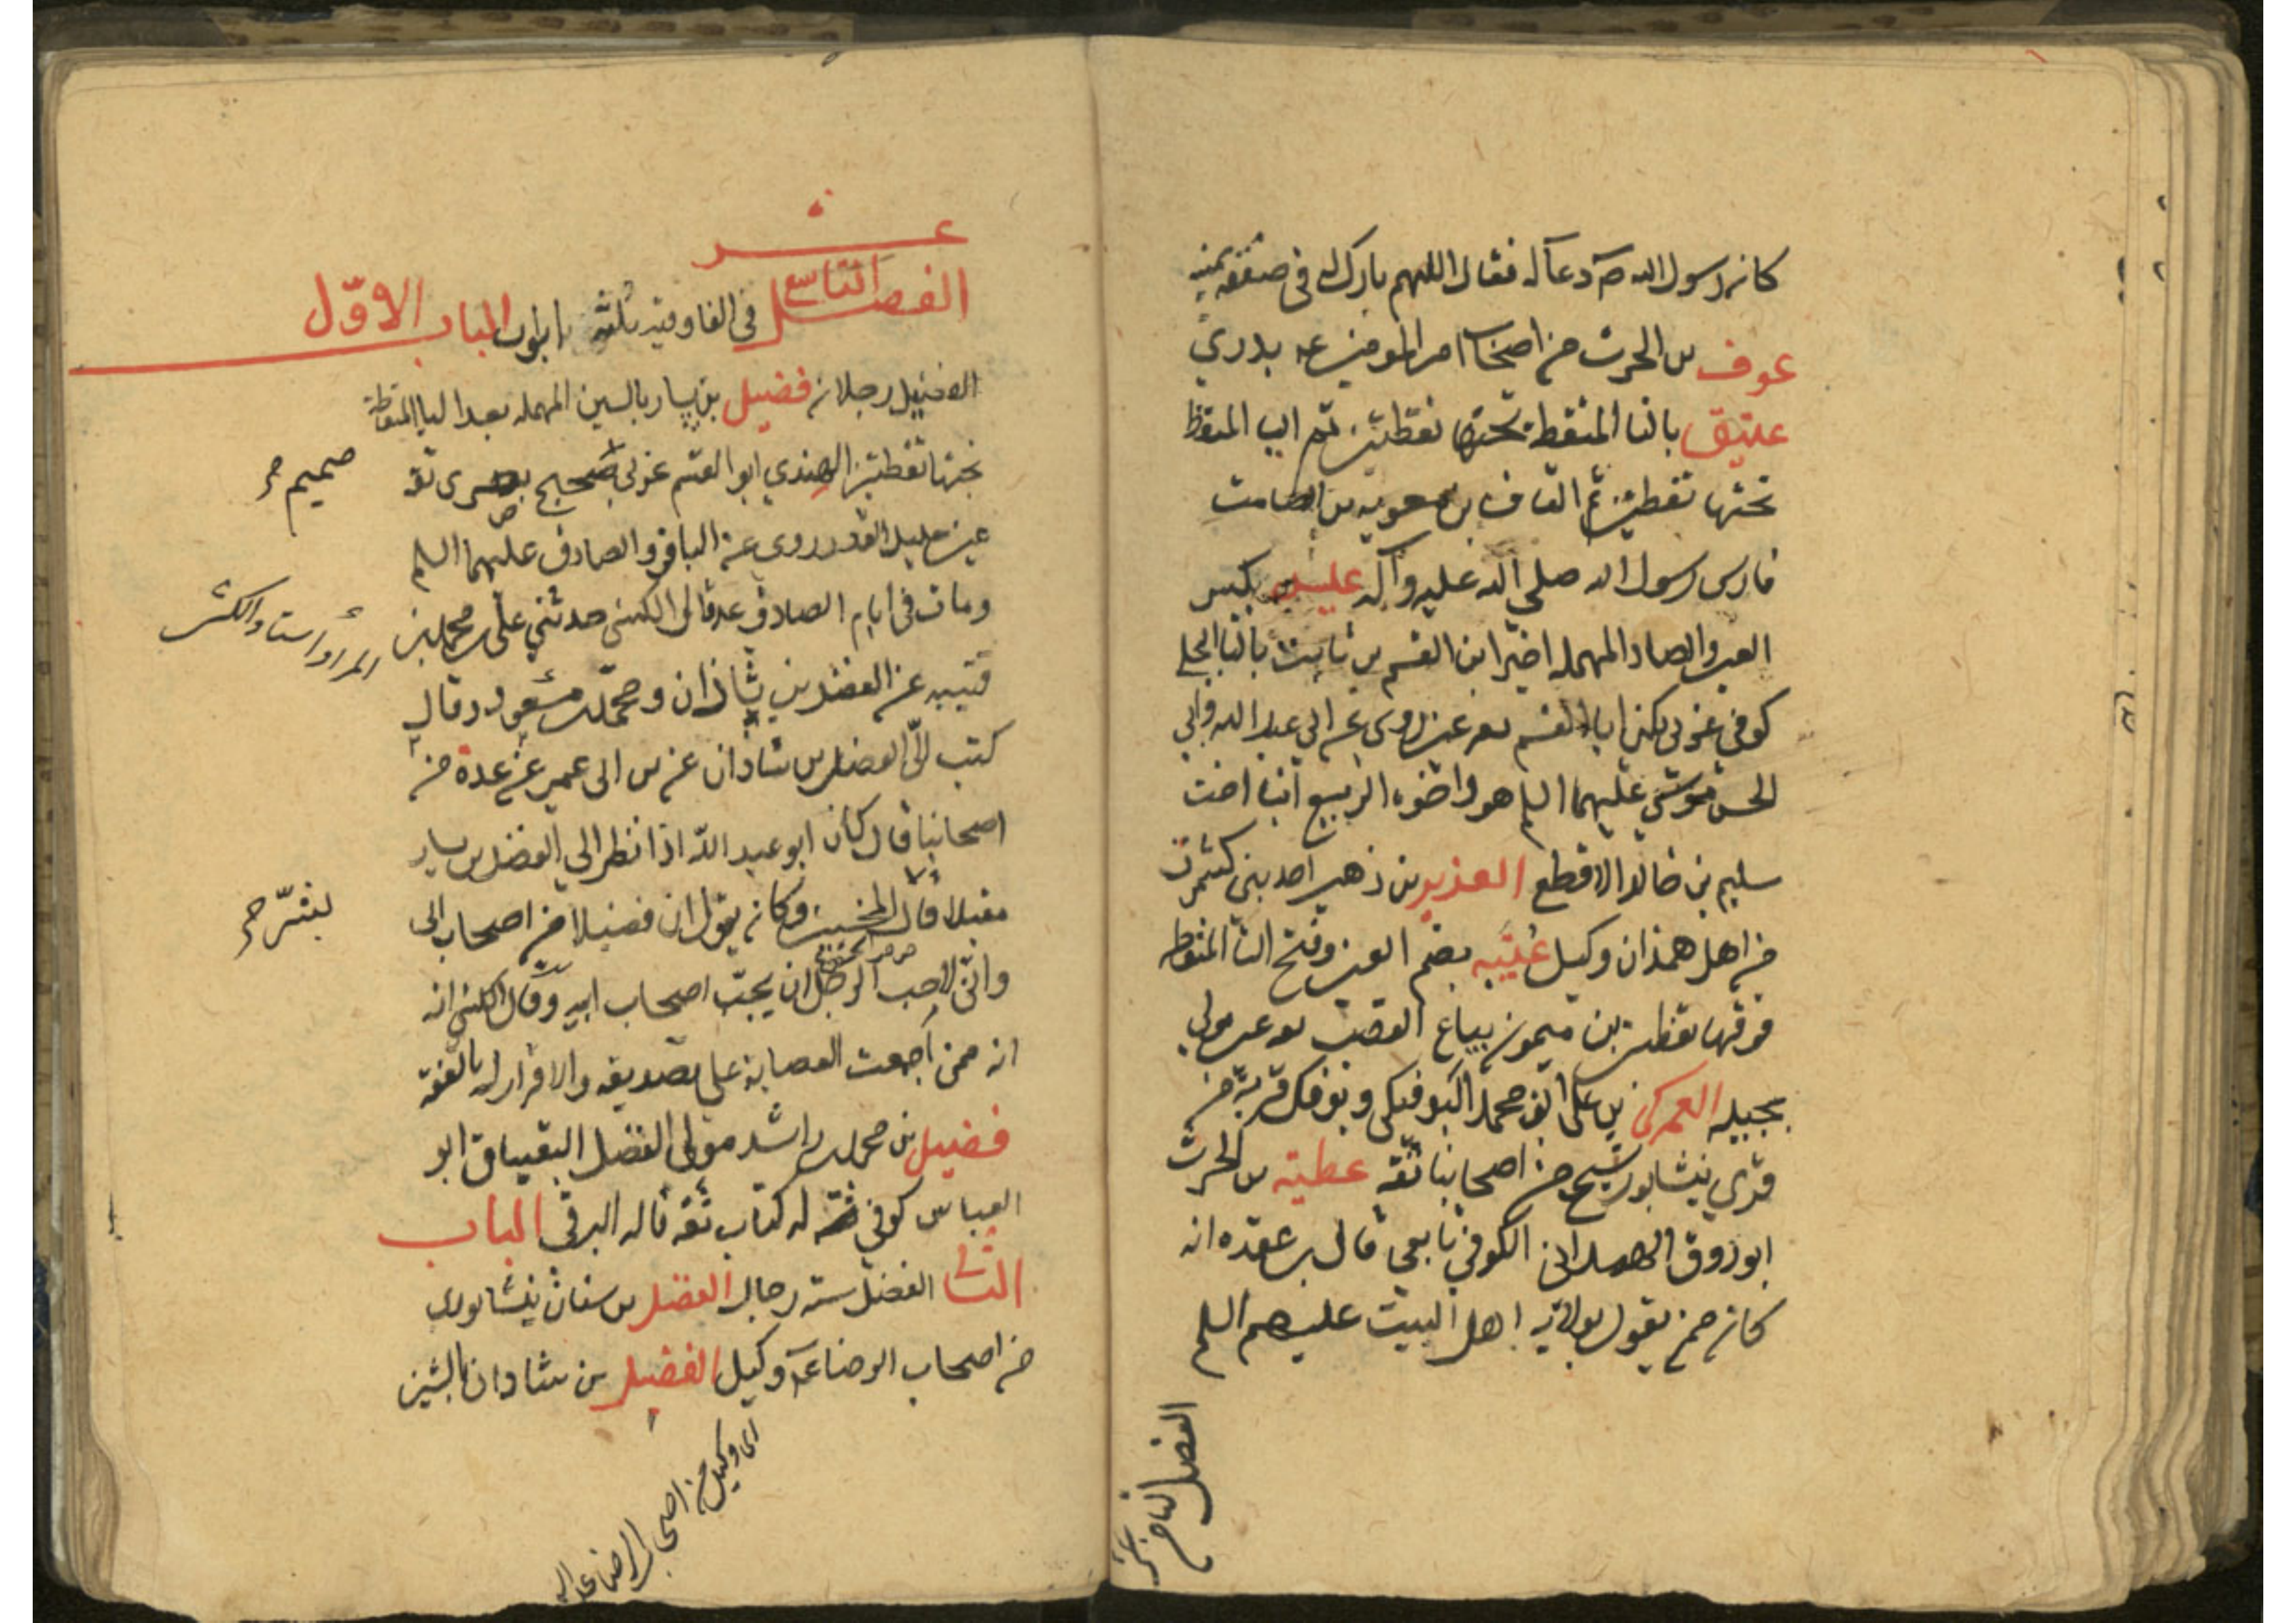 كان رسول الله ص دعا له فقال اللهم بارك له في صفقة يمينه
عوف بن الحرث من اصحاب امير المومنين ع بدري
عتيق بالتا المنقطة تحتها نقطتين ثم اليا المنقطة
تحتها نقطتين ثم القاف بن معوية بن الصامت
فارس رسول الله صلي الله عليه وآله عليه عيص بكسر
العين والصاد المهملة اخيرا ابن القسم بن ثابت بالثا البجلي
كوفي عربي يكنى ابا القسم ثقة عين روى عن ابي عبد الله وابي
الحسن موسى عليهما السلم هو واخوه الربيع ابنا اخت
سليم بن خالد الاقطع العزيز بن زهير احد بني كشمرد
من اهل همذان وكيل عتيبه بضم العين وفتح التا المنقطة
فوقها نقطتين بن ميمون بياع القصب ثقة عين مولى
بجيله العمركي بن علي ابو محمد البوفكي وبوفك قرية من
قرى نيشابور شيخ من اصحابنا ثقة عطية بن الحرث
ابو روق الهمداني الكوفي تابعي قال بن عقده انه
كان ممن يقول بولاية اهل البيت عليهم السلم
الفصل التاسع عشر
الفصل التاسع عشر
في الفا وفيه ثلثة ابواب الباب الاوّل
الفضيل رجلان فضيل بن يسار بالسين المهملة بعد اليا المنقطة
تحتها نقطتين النهدي ابو القسم عربي صحيح بصرى ثقة
صميم
عين جليل القدر روى عن الباقر والصادق عليهما السلم
ومات في ايام الصادق ع قال الكشي حدثني علي بن محمد بن
المراد استاد الكشي
قتيبه عن الفضل بن شاذان و محمد بن مسعود قال
كتب اليّ الفضل بن شاذان عن بن ابي عمير عن عدة من
اصحابنا قال كان ابو عبد الله اذا نظر الي الفضيل بن يسار
مقبلا قال بشر المخبتين وكان يقول ان فضيلا من اصحاب ابي
بشّر
وانّي لاحب الرجل ان يحبّ اصحاب ابيه وقال الكشي انه
انه ممن اجمعت العصابة على تصديقه والاقرار له بالفقه
فضيل بن محمد بن راشد مولى الفضل البقباق ابو
العباس كوفي ثقة له كتاب ثقة قاله البرقي الباب
الثاني الفضل ستة رجال الفضل بن سنان نيشابوري
من اصحاب الرضا ع وكيل الفضل بن شاذان بالشين
اى وكيل من اصحاب الرضا عليه